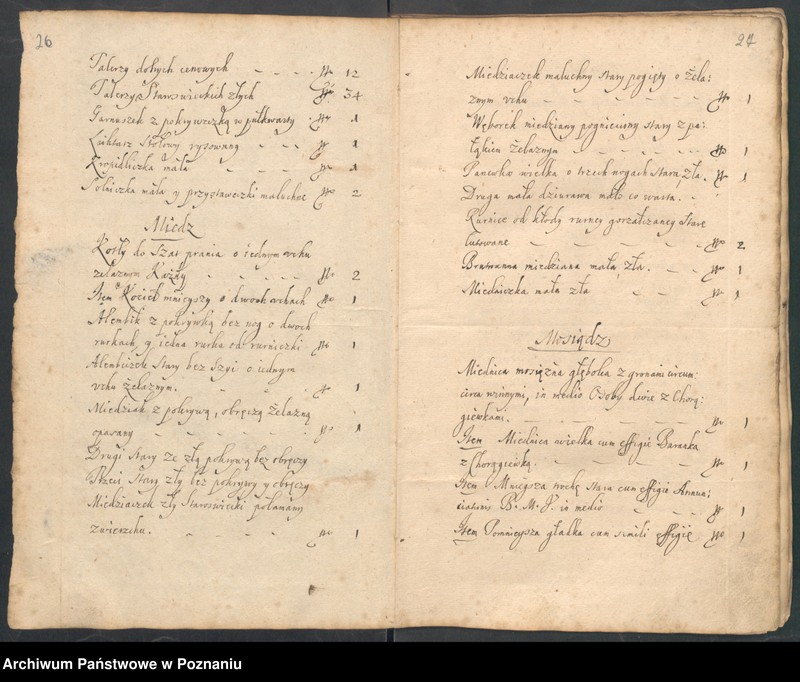 26
Talerzy dobrych cenowych – – – № 12
Talerzy Staroswieckich złych № 34
Garnuszek z pokryweczką w pułkwarty № 1
Lichtarz Stołowy rysowany – – № 1
mała – – № 1
Solniczka mała y przystaweczki maluchne № 2
Miedz
Kotły do Szat prania o iednym uchu
zelaznym Kazdy – – – – № 2
Item Kocieł mnieyszy o dwoch uchach № 1
Alembik z pokrywką bez nog o dwoch
rurkach, y iedna rurka od rurniczki № 1
Alembiczek Stary bez Szyi o iednym
uchu żelaznym. № 1
Miedziak z pokrywą, obręczą żelazną
opasany – – № 1
Drugi Stary ze złą pokrywą bez obręczy
Trzeci Stary zły bez pokrywy y obręczy
Miedziaczek zły Staroswiecki połamany
zwierzchu. – – – – № 1
27
Miedziaczek maluchny stary pogięty o żela:
znym uchu – – – – № 1
Węborek miedziany pognieciony stary z pa:
łąkiem żelaznym – – – – № 1
Panewka wielka o trzech nogach stara, zła. № 1
Druga mała dziurawa mało co warta. –
Rurnice od kłody rurney gorzałczaney Stare
lutowane – – – – № 2
miedziana mała, zła. – – № 1
Miedniczka mała zła – – № 1
Mosiądz
Miednica mosiężna głęboka z gronami circum:
circa winnymi, in medio Osoby dwie z Chorą:
giewkami. – – – – № 1
Item Miednica wielka cum effigie Baranka
z Chorągiewką. – – – – № 1
Item Mnieysza trochę Stara cum effigie Annun:
tiationis B. M. V. in medio – – № 1
Item Pomnieysza gładka cum simili effigie № 1
Archiwum Państwowe w Poznaniu